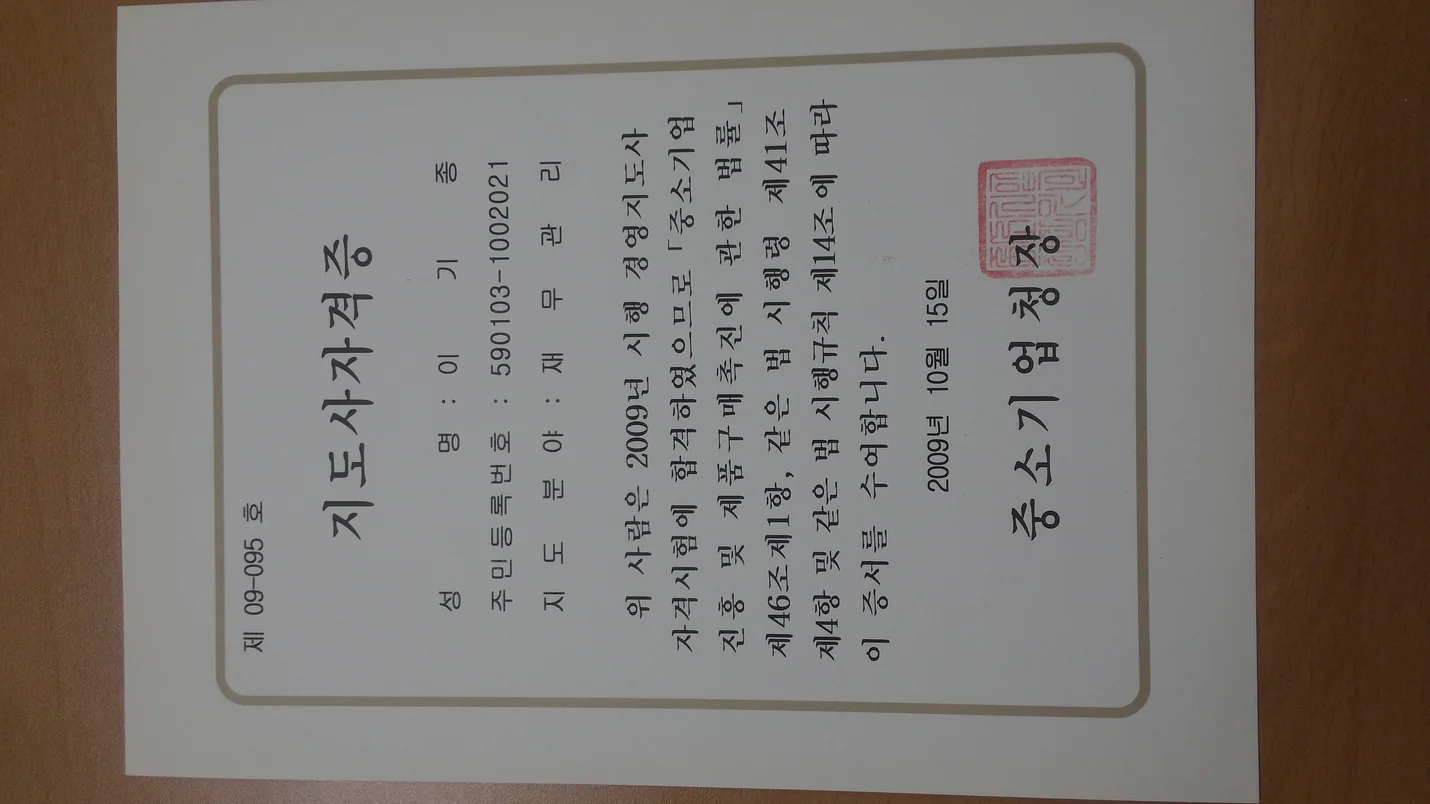 제 09-095 호
지도사자격증
성 명 : 이 기 종
주민등록번호 : 590103-1002021
지 도 분 야 : 재 무 관 리
위 사람은 2009년 시행 경영지도사
자격시험에 합격하였으므로 「중소기업
진흥 및 제품구매촉진에 관한 법률」
제46조제1항, 같은 법 시행령 제41조
제4항 및 같은 법 시행규칙 제14조에 따라
이 증서를 수여합니다.
2009년 10월 15일
중소기업청장